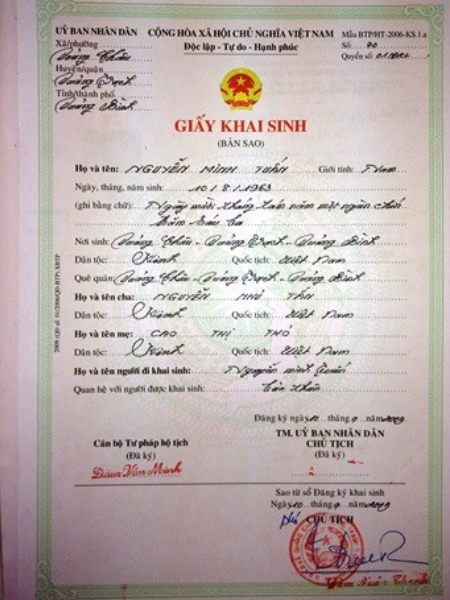 UỶ BAN NHÂN DÂN
CỘNG HÒA XÃ HỘI CHỦ NGHĨA VIỆT NAM
Mẫu BTP/HT-2006-KS.1.a
Xã/phường
Độc lập - Tự do - Hạnh phúc
Số: 70
Quảng Châu
Quyển số:
Huyện/quận
Quảng Trạch
Tỉnh/thành phố
Quảng Bình
GIẤY KHAI SINH
(BẢN SAO)
Họ và tên: NGUYỄN MINH TUẤN Giới tính: Nam
Ngày, tháng, năm sinh: 10/8/1963
(ghi bằng chữ): Ngày mười tháng tám năm một ngàn chín
trăm sáu ba
Nơi sinh: Quảng Châu - Quảng Trạch - Quảng Bình
Dân tộc: Kinh Quốc tịch: Việt Nam
Quê quán: Quảng Châu - Quảng Trạch - Quảng Bình
Họ và tên cha: NGUYỄN NHƯ TÂN
Dân tộc: Kinh Quốc tịch: Việt Nam
Họ và tên mẹ: CAO THỊ THỎ
Dân tộc: Kinh Quốc tịch: Việt Nam
Họ và tên người đi khai sinh: Nguyễn Minh Tuấn
Quan hệ với người được khai sinh: Bản thân
Đăng ký ngày 11 tháng 9 năm 2009
Cán bộ Tư pháp hộ tịch
(Đã ký)
Đàm Văn Minh
TM. UỶ BAN NHÂN DÂN
CHỦ TỊCH
(Đã ký)
Sao từ sổ Đăng ký khai sinh
Ngày 10 tháng 9 năm 2009
Phó CHỦ TỊCH
Đàm Xuân Thanh